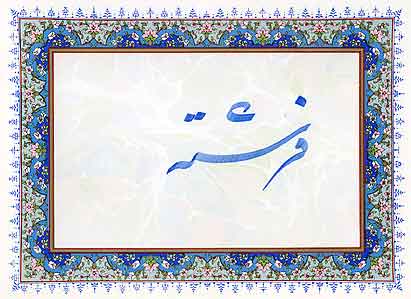 فرشته